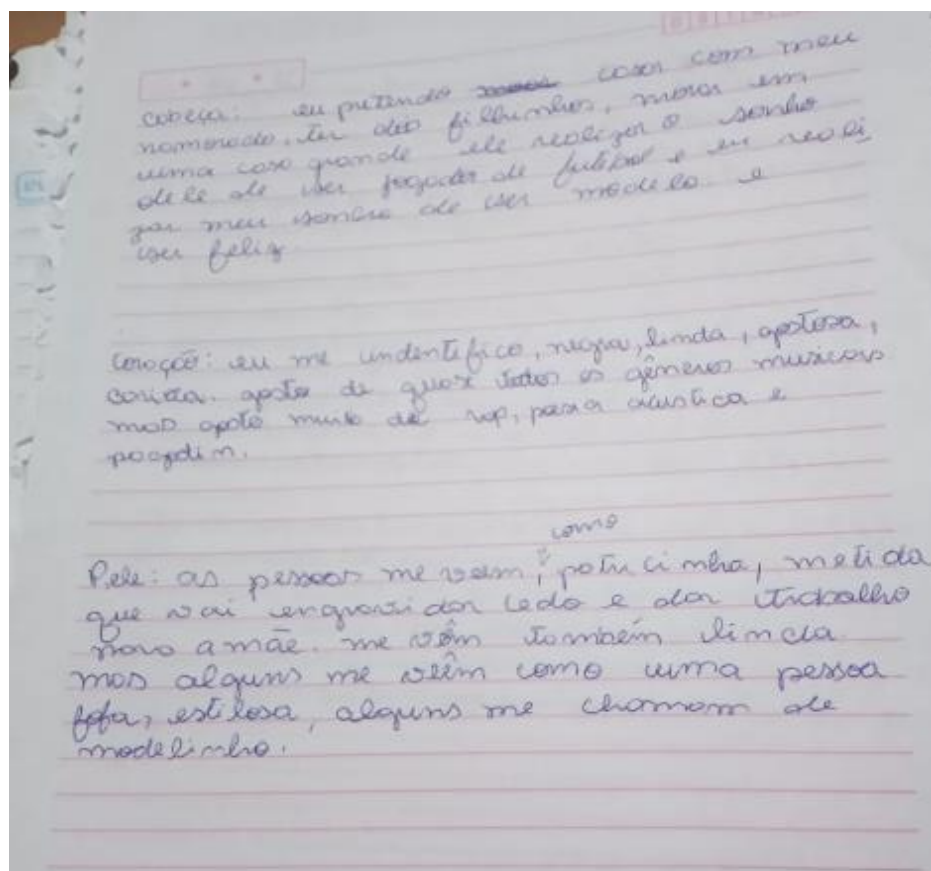 cabeça: eu pretendo casar com meu
namorado, ter dois filhinhos, morar em
uma casa grande ele realizar o sonho
dele de ser jogador de futebol e eu reali
zar meu sonho de ser modelo e
ser feliz
coração: eu me indentifico, negra, linda, gostosa,
gosto de quase todos os gêneros musicais
mas gosto muito de rap, acústica e
pagodin.
Pele: as pessoas me veem, como patricinha, metida
que vai engravidar cedo e dar trabalho
para a mãe. me vêm também linda
mas alguns me vêêm como uma pessoa
fofa, estilosa, alguns me chamam de
modelinho.